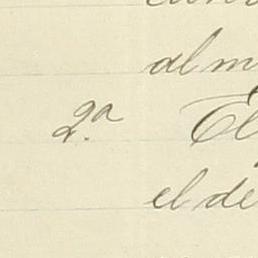 al m
2.ª El
el de